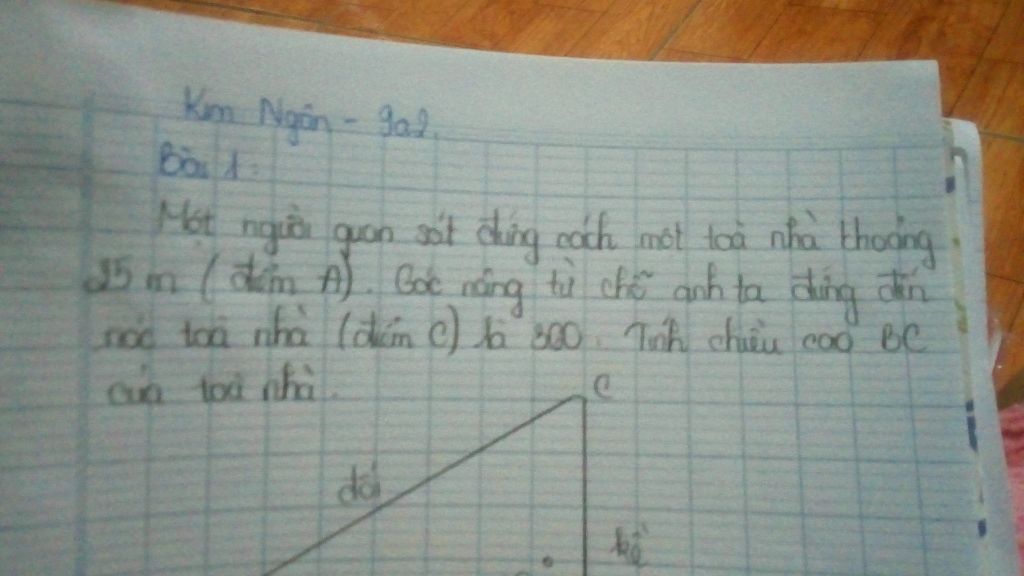 Kim Ngân - 9a2.
Bài 1:
Một người quan sát đứng cách một toà nhà khoảng
25 m (điểm A). Góc nâng từ chỗ anh ta đứng đến
nóc toà nhà (điểm C) là 300. Tính chiều cao BC
của toà nhà.
C
đối
kề